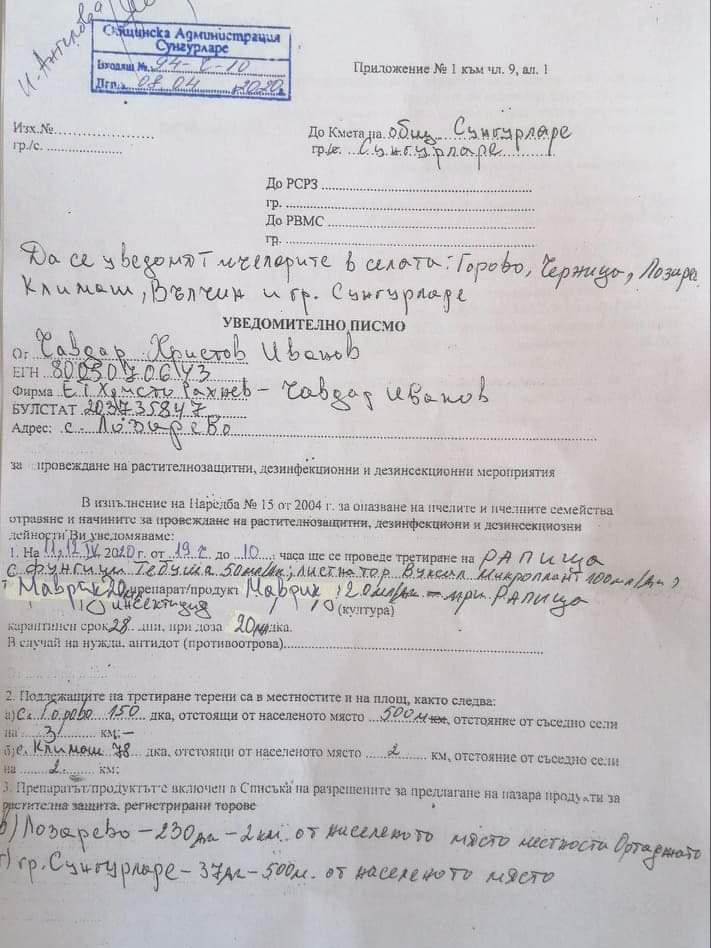 Общинска Администрация
Сунгурларе
Входящ №. 94-
Дгп. 08.04 2020г.
Приложение № 1 към чл. 9, ал. 1
Изх.№
гр./с.
До Кмета на общ Сунгурларе
гр./с. Сунгурларе
До РСРЗ
гр.
До РВМС
гр.
Да се уведомят пчеларите в селата: Горово, Черница, Лозаре
Климаш, Вълчин и гр. Сунгурларе
УВЕДОМИТЕЛНО ПИСМО
От Чавдар Христов Иванов
ЕГН 8003070643
Фирма ЕТ Христо Рахнев – Чавдар Иванов
БУЛСТАТ 203735847
Адрес: с. Лозарево
за провеждане на растителнозащитни, дезинфекционни и дезинсекционни мероприятия
В изпълнение на Наредба № 15 от 2004 г. за опазване на пчелите и пчелните семейства
отравяне и начините за провеждане на растителнозащитни, дезинфекциони и дезинсекциозни
дейности Ви уведомяваме:
1. На 11,12 IV 2020 г. от 19 ч. до 10 часа ще се проведе третиране на РАПИЦА
с фунгицид Тебуша 50 мл/дк; листнатор Вуксал микроплант 100 мл/дк
Маврик 20 препарат/продукт Маврик 20 мл/дк – при РАПИЦА
инсектицид (култура)
карантинен срок 28 дни, при доза 20 мл дка.
В случай на нужда, антидот (противоотрова)
2. Подлежащите на третиране терени са в местностите и на площ, както следва:
а) с. Горово 150 дка, отстоящи от населеното място 500 м км, отстояние от съседно сели
на 3 км; –
б) с. Климаш 78 дка, отстоящи от населеното място 2 км, отстояние от съседно сели
на 2 км;
3. Препаратът/продуктът е включен в Списъка на разрешените за предлагане на пазара продукти за
растителна защита, регистрирани торове
в) Лозарево – 230 дка – 2 км. от населеното място местност
г) гр. Сунгурларе – 37 дк – 500 м. от населеното място